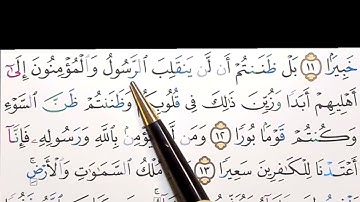 خَبِيرًا ۝١١ بَلْ ظَنَنتُمْ أَن لَّن يَنقَلِبَ ٱلرَّسُولُ وَٱلْمُؤْمِنُونَ إِلَىٰٓ
أَهْلِيهِمْ أَبَدًا وَزُيِّنَ ذَٰلِكَ فِى قُلُوبِ وَظَنَنتُمْ ظَنَّ ٱلسَّوْءِ
وَكُنتُمْ قَوْمًۢا بُورًا ۝١٢ وَمَن بِٱللَّهِ وَرَسُولِهِۦ فَإِنَّآ
أَعْتَدْنَا لِلْكَٰفِرِينَ سَعِيرًا ۝١٣ مُلْكُ ٱلسَّمَٰوَٰتِ وَٱلْأَرْضِ ۚ